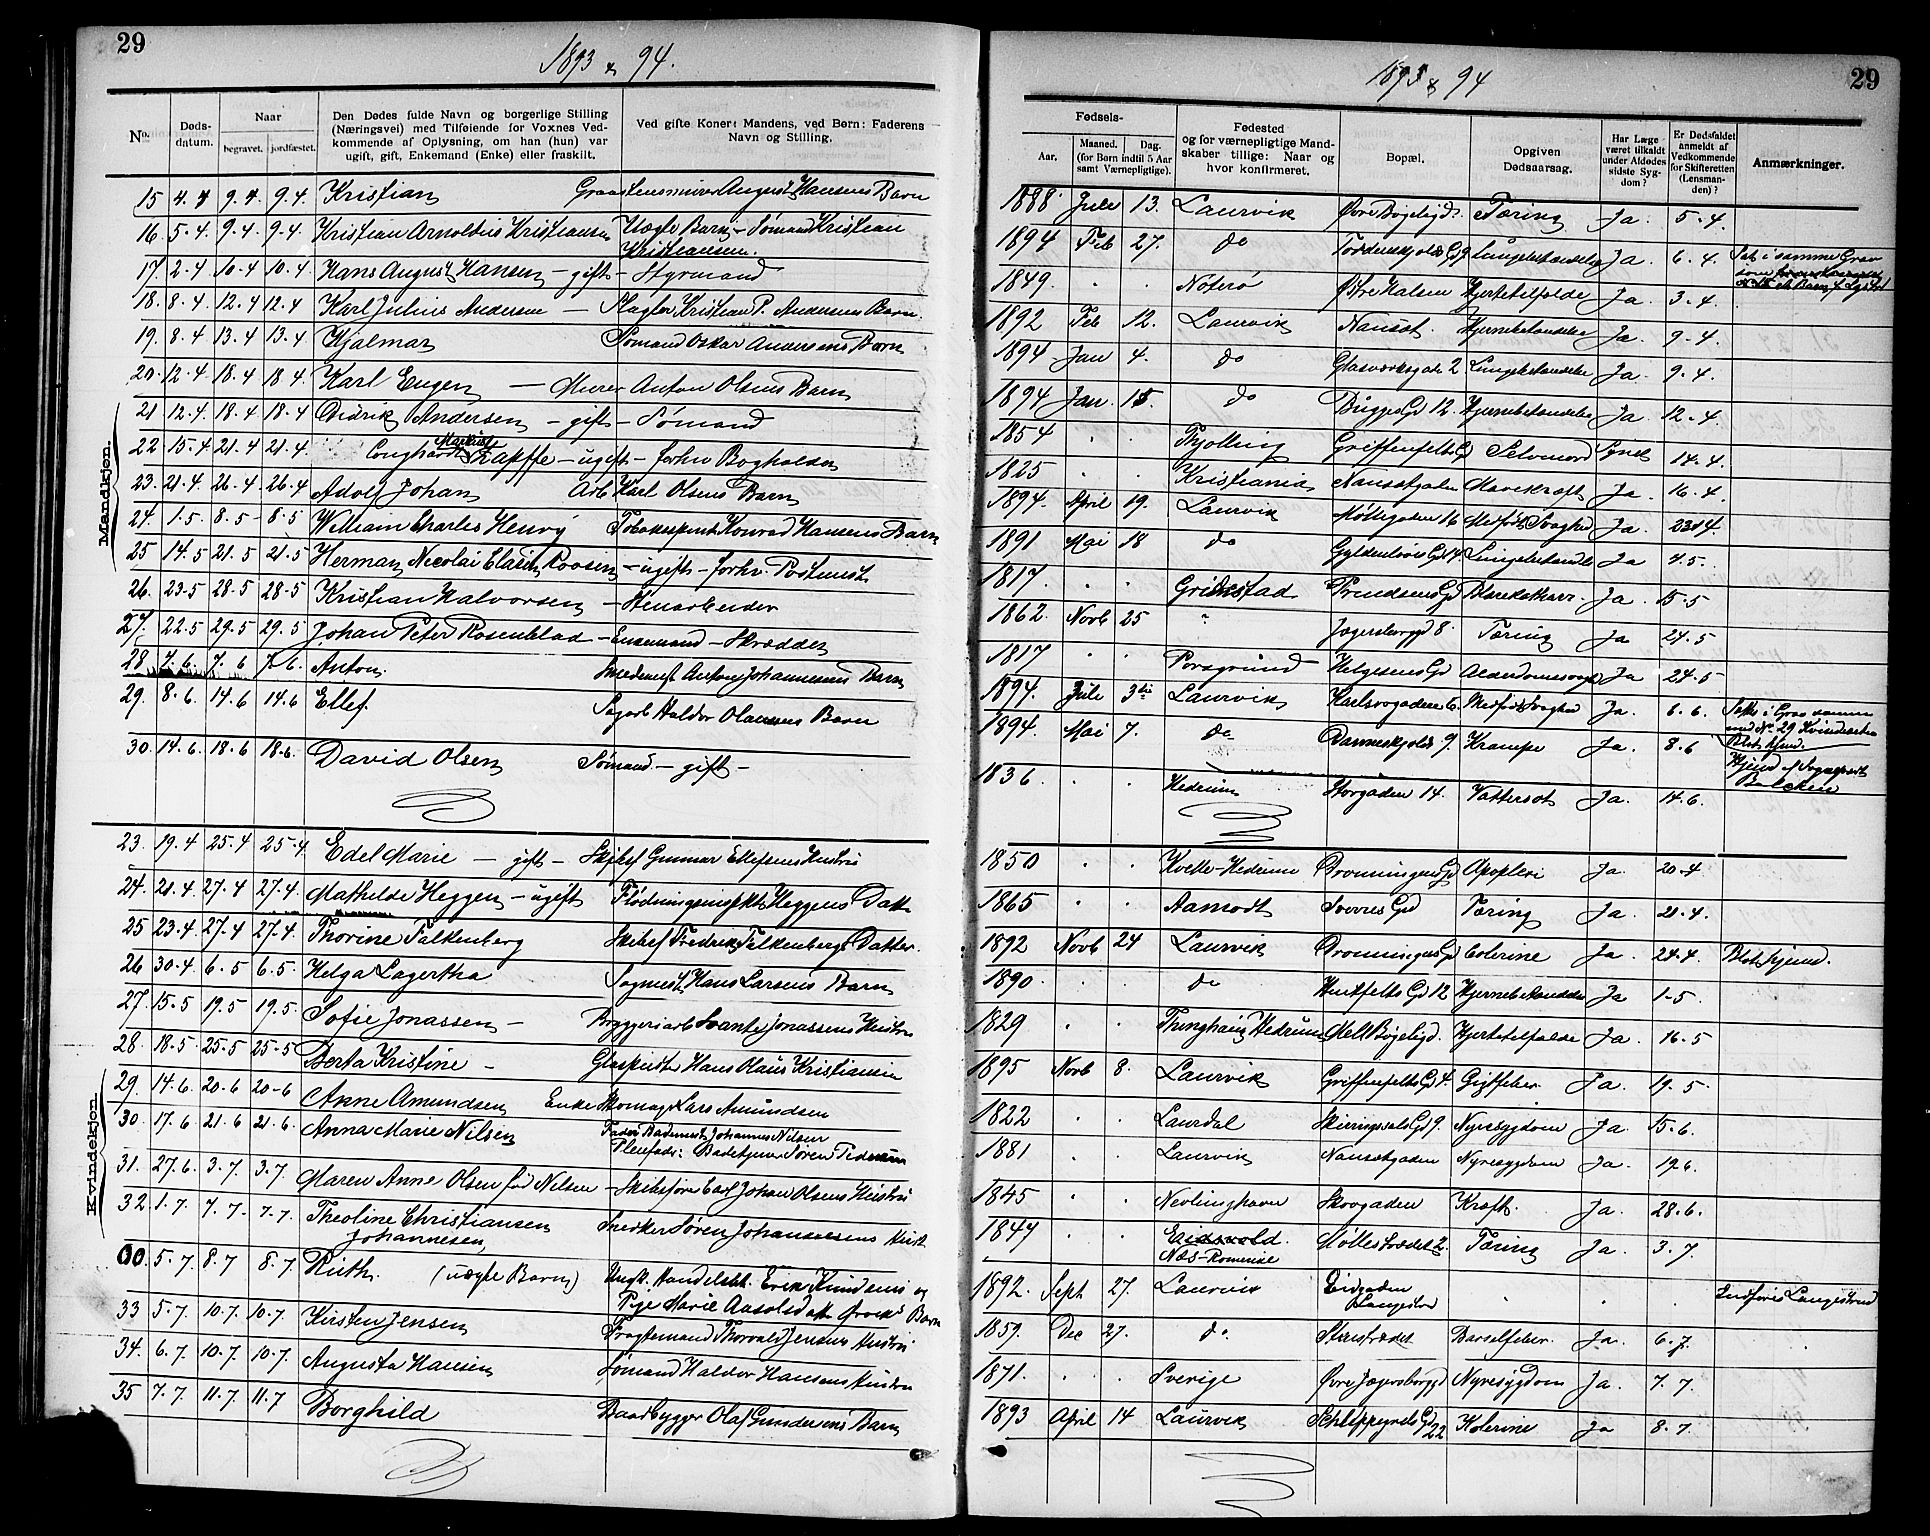 29
1893 & 94.
No.
Døds-
datum.
Naar
begravet.
jordfæstet.
Den Dødes fulde Navn og borgerlige Stilling
(Næringsvei) med Tilføiende for Voxnes Ved-
kommende af Oplysning, om han (hun) var
ugift, gift, Enkemand (Enke) eller fraskilt.
Ved gifte Koner: Mandens, ved Børn: Faderens
Navn og Stilling.
Mandkjøn.
15 4.4 9.4. 9.4. Kristian August Hansens Barn
16. 5-4. 9.4. 9.4. Kristian Arnoldus Kristiansen Uægte Barn - Sømand Kristian
Kristiansen.
17. 2-4 10-4 10.4. Hans August Hansen - gift - Styrmand
18. 8-4. 12.4 12.4. Karl Julius Andersen - Slagter Kristian P. Andersens Barn.
19. 8.4. 13.4 13.4. Hjalmar Sømand Oskar Andersens Barn
20. 12.4. 18.4 18.4. Karl Eugen - Murer Anton Olsens Barn
21 12.4. 18.4 18.4. Didrik Andersen - gift - Sømand
22 15.4 21.4 21.4. Kapffe - ugift - forhv Bogholder
23. 21.4. 26.4 26.4 Adolf Johan Arb Karl Olsens Barn
24. 1.5. 8.5 - 8.5 William Charles Henry Konrad Hansens Barn
25 14.5 21.5 21.5 Herman Nicolai Roosen - ugift - forhv. Postmest
26. 23-5 28.5 28-5 Kristian Halvorsen - Stenarbeider
27. 22.5 29.5 29.5 Johan Peter Rosenblad - Enkemand - Skrædder
28 7.6. 7.6 7.6. Anton. Anton Johannesens Barn
29. 8.6. 14.6 14.6 Ellef. Sagarb Haldor Olausens Barn
30. 14.6. 18.6 18.6. David Olsen Sømand - gift -
Kvindekjøn
23. 19.4 25.4 25.4. Edel Marie - gift - Skibsf Gunnar Ellefsens Hustru
24. 21.4. 27.4 27.4. Mathilde Heggen - ugift Heggens Datt
25 23.4. 27.4 27.4. Thorine Falkenberg Skibsf Fredrik Falkenbergs Datter.
26 30.4. 6.5 6.5. Helga Lagertha Hans Larsens Barn
27. 15.5 19.5 19.5. Sofie Jonassen - Bryggeriarb Svante Jonassens Hustru
28. 18.5 25-5 25-5 Berta Kristine - Hans Olaus Kristiansen
29. 14.6. 20-6 20-6 Anne Amundsen Enke Skomag Lars Amundsen
30. 17.6. 21.6 21.6. Anna Marie Nilsen Fader: Johannes Nilsen
Pleiefader: Søren Pedersen
31. 27.6. 3.7. 3.7. Maren Anne Olsen fød Nilsen - Skibsfører Carl Johan Olsens Hustru
32 1.7. 7.7. 7.7. Theoline Christiansen Snedker Søren Johannesens Hust
Johannesen,
00. 5.7 8.7 8.7. Ruth. (uægte Barn) Ungk. Handelsbt. Erik Knudsens og
Pige Marie Barn
33 5.7. 10.7. 10.7. Kirsten Jensen Fragtemand Thorvald Jensens Hustru
34. 6.7. 10.7. 10.7. Augusta Hansen Sømand Haldor Hansens Hustru
35 7.7. 11.7 11.7 Borghild Baadbygger Olaf Gundersens Barn
1893 & 94
29
Fødsels-
Aar.
Maaned.
Dag.
(for Børn indtil 5 Aar
samt Værnepligtige).
Fødested
og for værnepligtige Mand-
skaber tillige: Naar og
hvor konfirmeret.
Bopæl.
Opgiven
Dødsaarsag.
Har Læge
været tilkaldt
under Afdødes
sidste Syg-
dom?
Er Dødsfaldet
anmeldt af
Vedkommende
for Skifteretten
(Lensman-
den)?
Anmærkninger.
1888. Juli 13. Laurvik Øvre Bøgeligd. Tæring Ja 5-4.
1894 Feb 27. do Tordenskjolds Gd 9 Lungebetændelse Ja. 6.4. Sat i samme Grav
1849. . . Nøterø Østre Halsen Hjertetilfælde Ja. 3.4.
1892 Feb 12. Laurvik Nanset. Hjernebetændelse Ja. 9.4.
1894 Jan 4. do Glasværksgade 2 Lungebetændelse Ja. 9.4.
1894 Jan. 15. do Bugges Gd 12. Hjernebetændelse Ja. 12.4.
1854 . . Thjølling Griffenfelts Gd Selvmord Synet 14.4.
1825 . . Kristiania Nansetgaden Mavekræft Ja. 16.4.
1894. April 19. Laurvik Møllegaden 16 Medfødt Svaghed Ja. 23.4.
1891 Mai 18 do Gyldenløves Gd 14. Lungebetændelse Ja 4.5.
1817. . . Grimstad Prindsens Gd Blærekatharr. Ja. 15.5
1862. Novb 25 " Jegersborggd 8. Tæring Ja 24.5
1817 . . Porsgrund Helgesens Gd Alderdomssvagh Ja 24.5
1894. Juli 3die Laurvik Karlsrogaden 6. Medfødt Svaghed Ja. 8.6. Satt i Grav sammen
med No 29 Kvindesiden
1894. Mai 7. do Danneskjolds 9. Krampe Ja. 8.6 Blot Kjend.
1836. . . Hedrum Storgaden 14. Vattersot Ja. 14.6. Kjend af Sognepræst
Balchen
1850 . . Kvelle-Hedrum Dronningens Gd Apopleksi Ja. 20.4
1865 . . Aamodt Sverres Gd Tæring Ja. 21.4.
1892 Novb 24 Laurvik Dronningens Gd Colerine Ja. 24.4. Blot kjend.
1890. . . do Huitfelts Gd 12 Hjernebetændelse Ja 1-5.
1829 . . Hedrum Bøgeligd. Hjertetilfælde Ja. 16.5
1895 Novb 8. Laurvik Griffenfelts Gd 4. Gigtfeber Ja. 19.5
1822 . . Laurdal Skiringssals Gd 9. Nyresygdom Ja. 15.6.
1881 . . Laurvik Nansetgaden Nyresygdom Ja. 19.6.
1845 . . Nevlunghavn Skovgaden Kræft. Ja. 28.6.
1847 . . Eidsvold. Møllestrædet 2. Tæring Ja. 3.7.
Næs - Romerike
1892. Sept 27. Laurvik Eidgaden . . . Indført Langestrand
Langestrd
1859. Dec 27. do. Stenstrædet Barselfeber. Ja. 6.7.
1871. . . Sverige Øvre Jegersborggd Nyresygdom Ja. 7.7.
1893 April 14 Laurvik Schleppegrels Gd 22 Kolerine Ja 8.7.